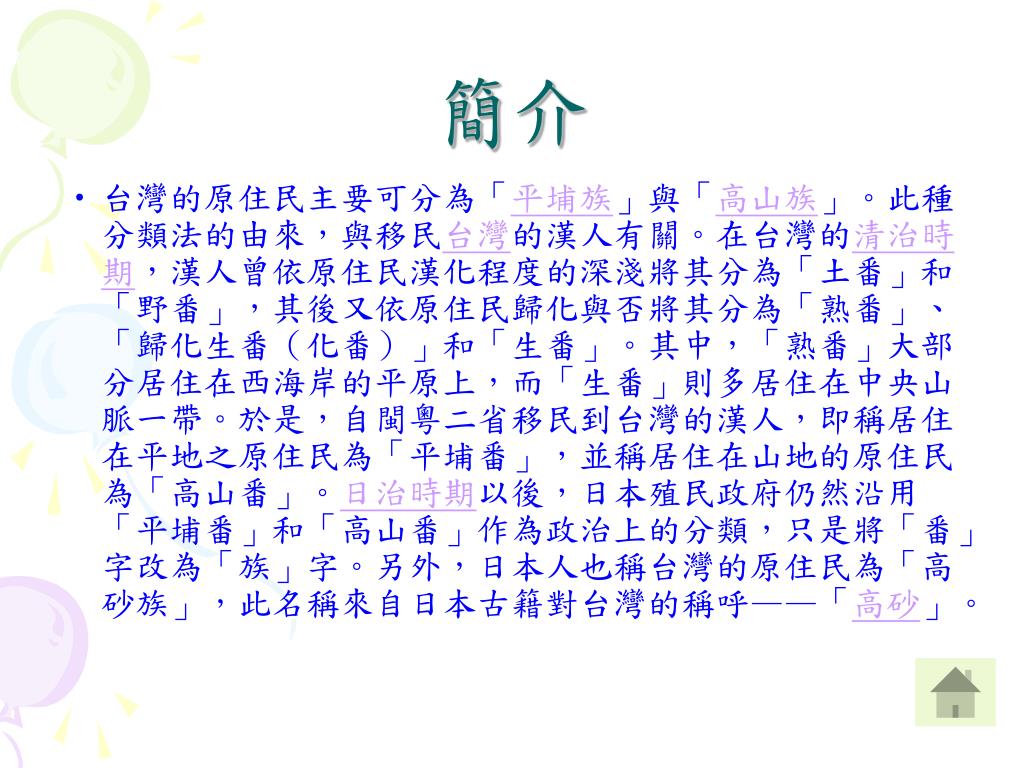 簡介
•台灣的原住民主要可分為「平埔族」與「高山族」。此種
分類法的由來，與移民台灣的漢人有關。在台灣的清治時
期，漢人曾依原住民漢化程度的深淺將其分為「土番」和
「野番」，其後又依原住民歸化與否將其分為「熟番」、
「歸化生番（化番）」和「生番」。其中，「熟番」大部
分居住在西海岸的平原上，而「生番」則多居住在中央山
脈一帶。於是，自閩粵二省移民到台灣的漢人，即稱居住
在平地之原住民為「平埔番」，並稱居住在山地的原住民
為「高山番」。日治時期以後，日本殖民政府仍然沿用
「平埔番」和「高山番」作為政治上的分類，只是將「番」
字改為「族」字。另外，日本人也稱台灣的原住民為「高
砂族」，此名稱來自日本古籍對台灣的稱呼——「高砂」。